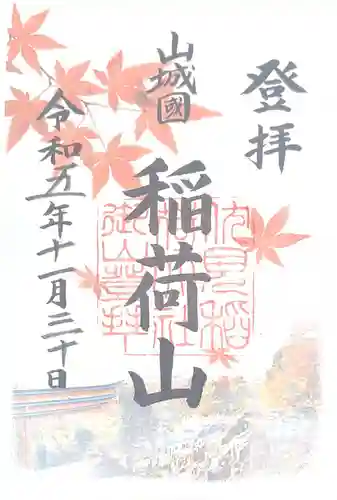 登拝
山城國
稲荷山
令和五年十一月三十日